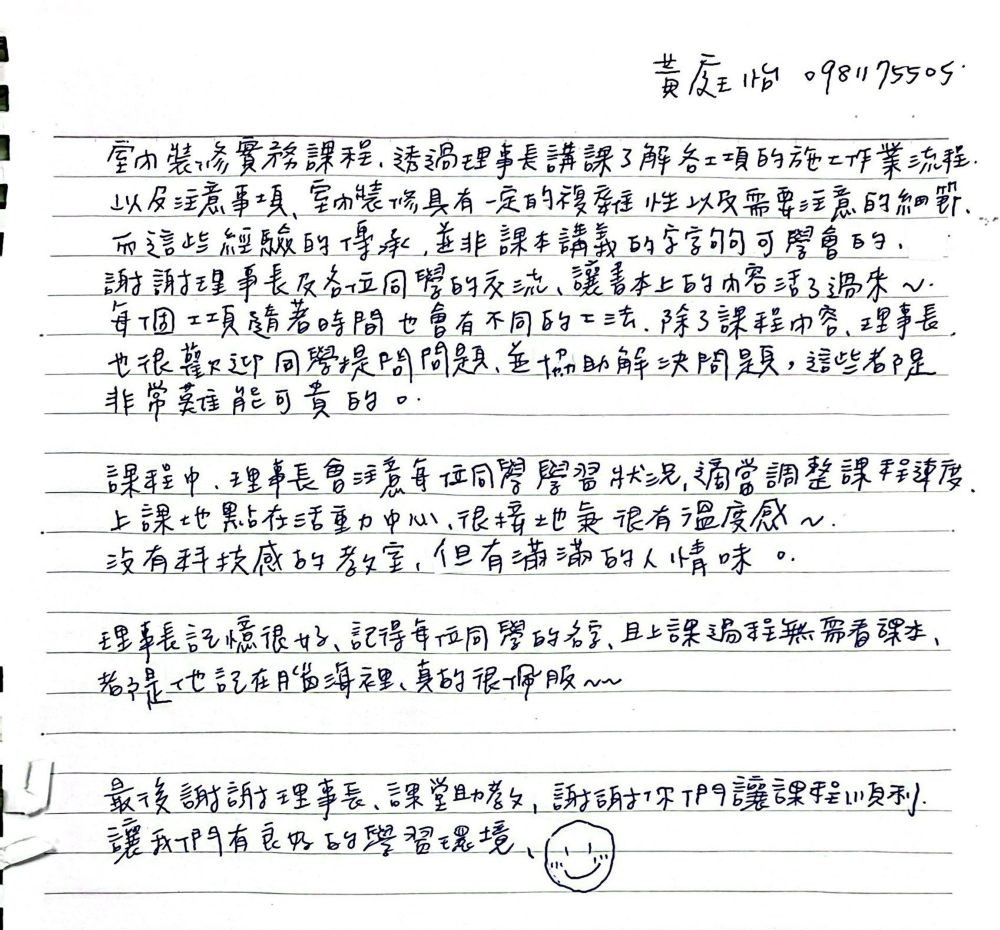 黃庭怡 0981175505.
室內裝修實務課程、透過理事長講課了解各工項的施工作業流程.
以及注意事項、室內裝修具有一定的複雜性以及需要注意的細節、
而這些經驗的傳承、並非課本講義的字字句句可學會的、
謝謝理事長及各位同學的交流、讓書本上的內容活了過來~.
每個工項隨著時間也會有不同的工法.除了課程內容、理事長
也很歡迎同學提問問題、並協助解決問題,這些都是
非常難能可貴的。
課程中、理事長會注意每位同學學習狀況、適當調整課程速度.
上課地點在活動中心、很接地氣很有溫度感~.
沒有科技感的教室、但有滿滿的人情味。
理事長記憶很好、記得每位同學的名字、且上課過程無需看課本、
都是他記在腦海裡、真的很佩服~~
最後謝謝理事長、課堂助教、謝謝你們讓課程順利.
讓我們有良好的學習環境、